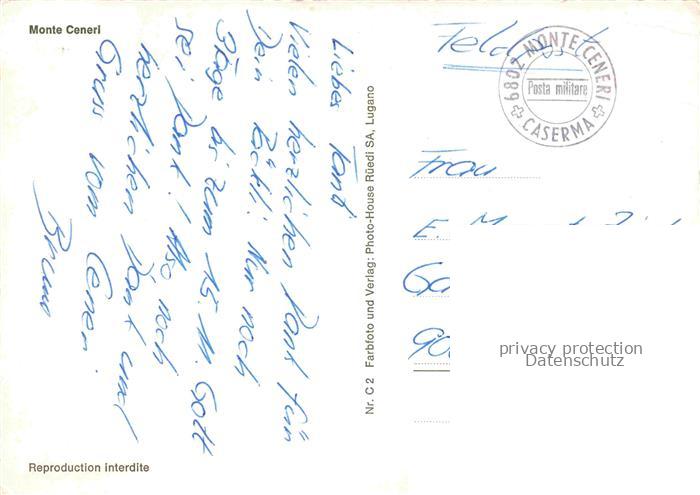 Monte Ceneri
Liebes Tanti
Vielen herzlichen Dank für
Dein Päckli. Nur noch
Tage bis zum 15. M. Gott
sei Dank! Also noch
herzlichen Dank und
Gruss vom Ceneri.
Bruno
Reproduction interdite
Nr. C 2 Farbfoto und Verlag: Photo-House Rüedi SA, Lugano
Feldpost
6802 MONTE CENERI
Posta militare
CASERMA
Frau
E. M
Ga
90
privacy protection
Datenschutz